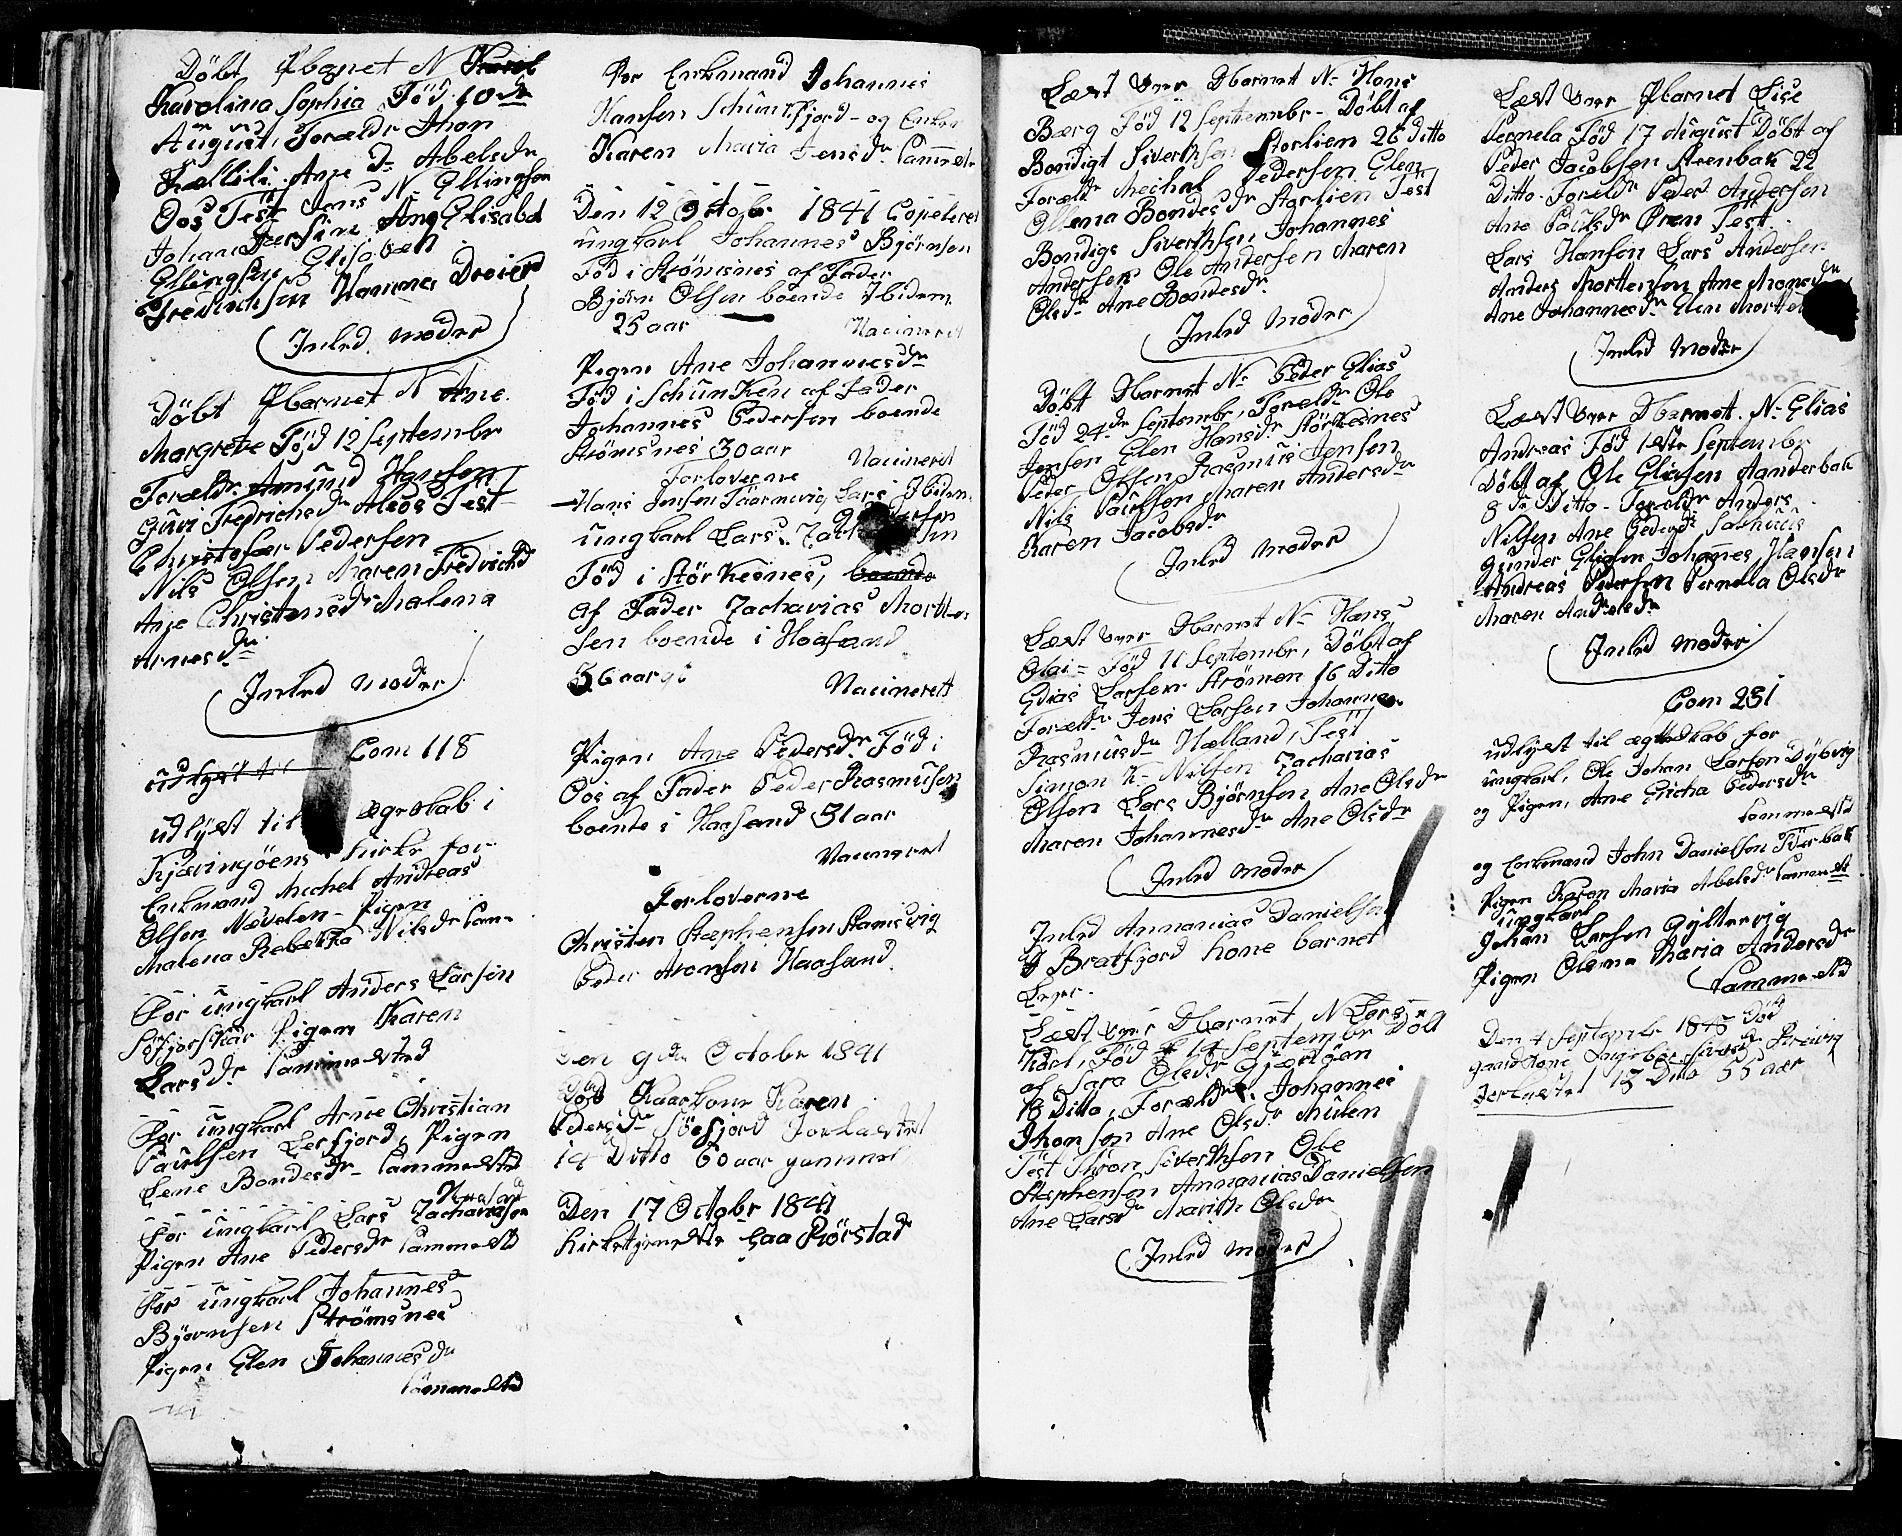 Döbt Pbarnet N
Karolina Sophia Föd 10de
August, Forældr Jhon
Ane Abelsdr
Oos Test Jens N Ellingsen
Johan Ane Elisabet
Ellingsen Elisabet
Fredrichsen Hanna Dreier
Inled moder
Döbt Pbarnet N Ane
Margrete Föd 12 Septembr
Forældr Amund Hansen
Guri Fredrichsdr Aleos Test
Christofær Pedersen
Nils Olsen Maren Fredrichsd
Ane Christensdr Malena
Arnesdr
Inled moder
Com 118
udlyst til
udlyst til Ægteskab i
Kjæringöens kirke for
Enkmand Michel Andreas
Olsen Nævelen - Pigen
Malena Rebekka Nilsdr Sam-
For ungkarl Anders Larsen
Pigen Karen
Larsdr Sammested
For ungkarl Arne Christian
Paulsen Lerfjord, Pigen
Lene Bondesdr Sammested
Haasand
For ungkarl Lars Zachariasen
Pigen Ane Pedersdr Sammested
For ungkarl Johannes
Björnsen Strömsnes
Pigen Elen Johannesdr
Sammested
For Enkmand Johannes
Hansen Schunkfjord - og Enken
Karen Maria Jensdr Sammest
Den 12 Octobr 1841 Copuleret
ungkarl Johannes Björnsen
Föd i Strömsnes af Fader
Björn Olsen boende Ibidem
25 aar
Vacineret
Pigen Ane Johannesdr
Föd i Schunken af Fader
Johannes Pedersen boende
Strömsnes 30 aar
Vacineret
Forloverne
Hans Jensen Lars Ibidem
ungkarl Lars
Föd i Störkesnes, boende
af Fader Zacharias Morten
sen boende i Haasand
36 aar
Vacineret
Pigen Ane Pedersdr Föd i
Oos af Fader Peder Rasmusen
boende i Haasand 31 aar
Vacineret
Forloverne
Christen Stephensen
Peder Aronsen Haasand
Den 9de Octobr 1841
Död Kaarkone Karen
Pedersdr Söefjord Jorfæstet
14 Ditto 60 aar gammel
Den 17 Octobr 1841
kirketjeneste Paa Rörstad
Læst over Dbarnet N Hans
Bærg Föd 12 Septembr - Döbt af
Bondigt Siverthsen Storlien 26 Ditto
Forældr Meihal Pedersen Elen
Ollena Bondesdr Storlien Test
Bondigs Siverthsen Johannes
Andersen Ole Andersen Maren
Olsdr Ane Bondesdr
Inled moder
Döbt Dbarnet N Peder Elias
Föd 24de Septembr, Forældr Ole
Jensen Elen Hansdr Störkesnes
Peder Olsen Rasmus Jensen
Nils Paulsen Maren Andersdr
Karen Jacobsdr
Inled moder
Læst over Dbarnet N Hans
Olai Föd 11 Septembr, Döbt af
Elias Larsen Strömen 16 Ditto
Forældr Jens Larsen Johanna
Rasmusdr Hælland, Test
Simon K Nilsen Zacharias
Olsen Lars Björnsen Ane Olsdr
Maren Johannesdr Ane Olsdr
Inled moder
Inled Annanias Danielsen
Bratfjord kone barnet
Læst over Dbarnet N Lars
Karl, Föd 14 September Dölt
af Sara Olsdr Gjæröen
18 Ditto, Forældr Johannes
Jhonsen Ane Olsdr Mulen
Test Siverthsen Ole
Stephensen Annanias Danielsen
Ane Larsdr Marith Olsdr
Inled moder
Læst over Pbarnet Lise
Pernela Föd 17 August Döbt af
Peder Jacobsen Steenbak 22
Ditto - Forældr Peder Andersen
Ane Paulsdr Ören Test
Lars Hansen Lars Andersen
Anders Mortensen Ane
Ane Johannesdr Elen
Inled Moder
Læst over Dbarnet. N Elias
Andreas Föd 1ste Septembr
Döbt af Ole Eliesen Sanderbak
8de Ditto - Forældr Anders
Nilsen Ane Pedersdr
Gunder Eliesen Johannes Hansen
Andreas Pedersen Pernella Olsdr
Maren
Inled moder
Com 231
udlyst til ægteskab for
ungkarl, Ole Johan Larsen Dybvig
og Pigen, Ane Pedersdr
Sammested
og Enkmand John Danielsen
Pigen Karen Maria Abelsdr Sammest
ungkarl
Johan Larsen Gyltevig
Pigen Olena Maria Andersdr
Sammested
Den 4 Septembr 1845 Död
gaardkone Ingebor Siverdr
Jorfæstet 13 Ditto 55 aar